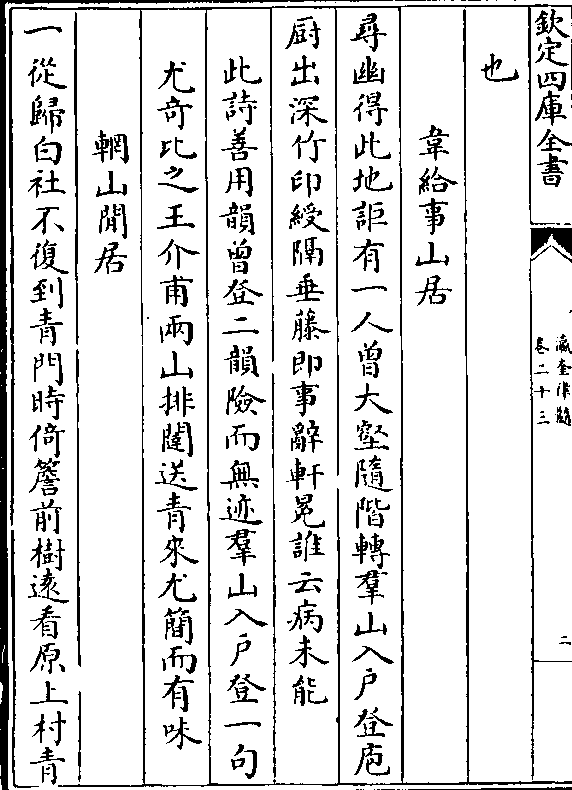 欽定四庫全書
瀛奎律髓
卷二十三
二
也
韋給事山居
尋幽得此地詎有一人曾大壑隨階轉羣山入户登庖
厨出深竹印綬隔垂藤即事辭軒冕誰云病未能
此詩善用韻曾登二韻險而無迹羣山入户登一句
尤奇比之王介甫兩山排闥送青來尤簡而有味
輞山閒居
一從歸白社不復到青門時倚簷前樹遠看原上村青